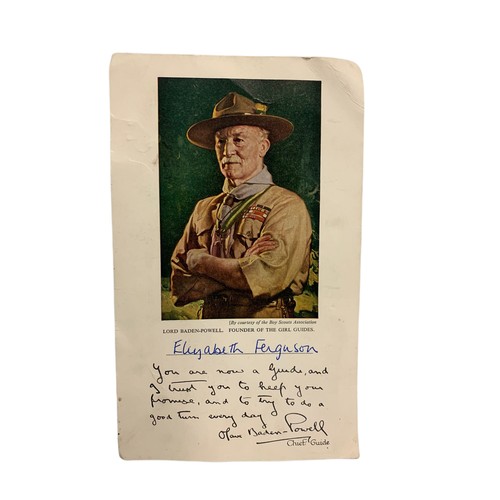 [By courtesy of the Boy Scouts Association
LORD BADEN-POWELL. FOUNDER OF THE GIRL GUIDES.
Elizabeth Ferguson
You are now a Guide, and
I trust you to keep your
promise, and to try to do a
good turn every day
Olave Baden-Powell
Chief Guide